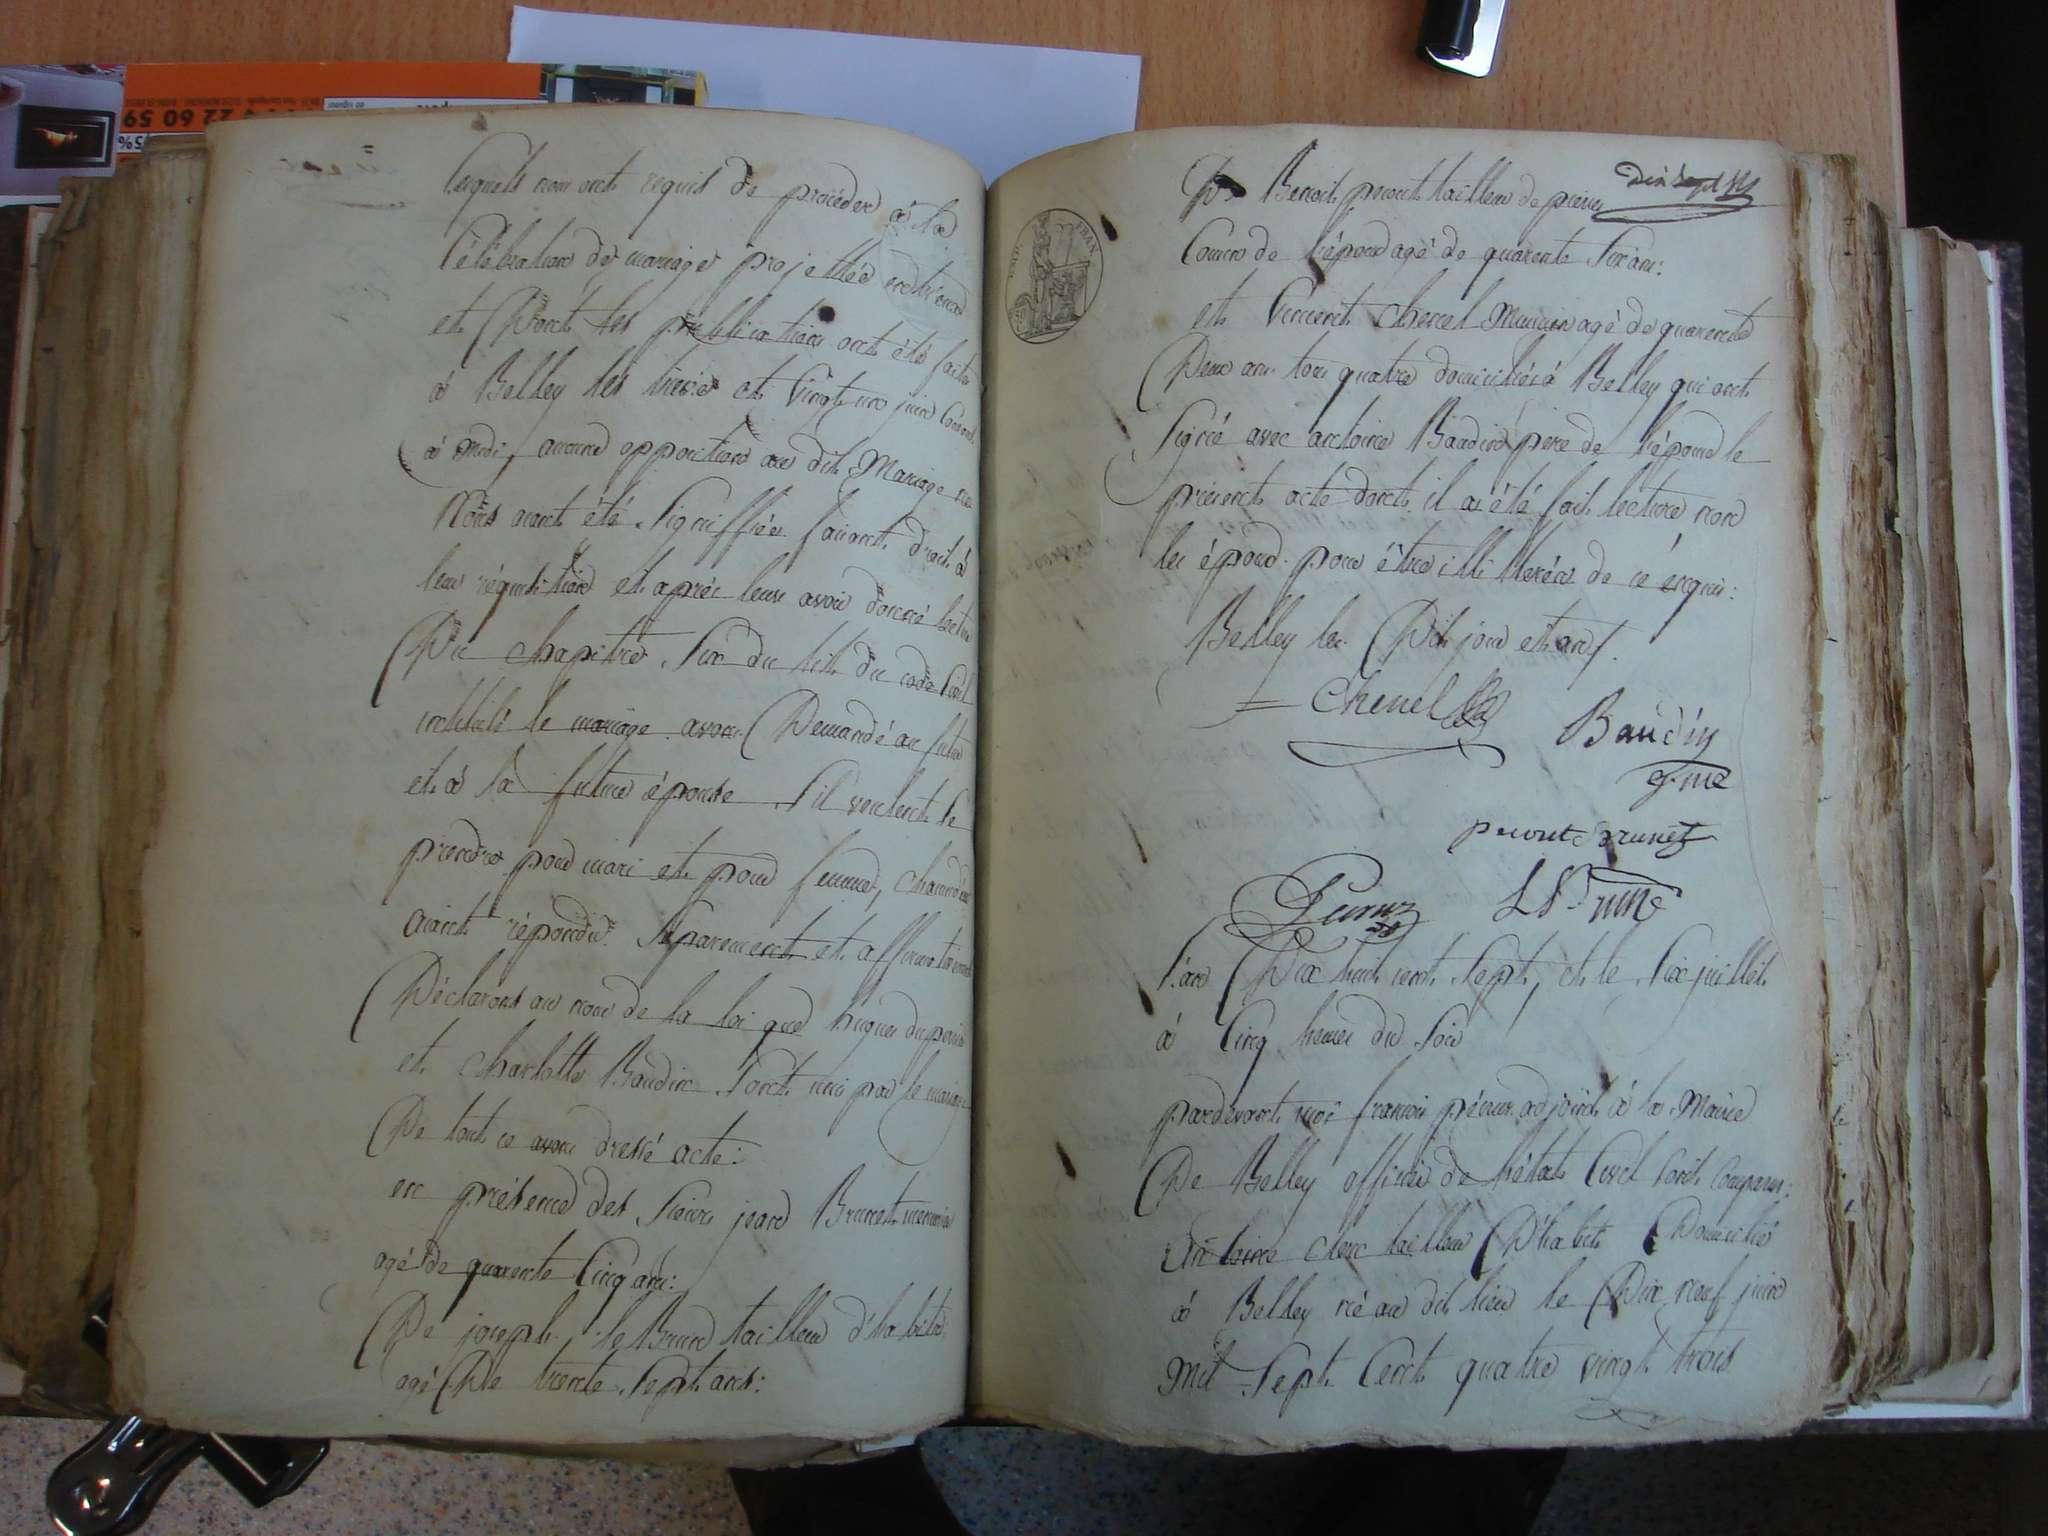 lesquels nous ont requis de procéder à la
Célébration du mariage projettée entr'eux
et Dont les publications ont été faites
à Belley les et Vingt un juin Courant
à midi, aucune opposition au dit Mariage ne
Nous aiant été Signiffiée faisant droit à
leur réquisition et après leur avoir donné lecture
Du chapitre Six du titre du code Civil
intitulé le mariage avons Demandé au futur
et à la future épouse S'il veulent se
prendre pour mari et pour femme, chacun d'eux
aiant répondu Séparement et affirmativement
Déclarons au nom de la loi que hugues duperier
et charlotte Baudin Sont unis par le mariage
De tout ce avons dressé acte:
en présence des Sieurs jean Brunet menuisier
agé de quarente Cinq ans:
De joseph le Brun tailleur d'habits
agé De trente Sept ans:
dix Sept
De Benoit prout tailleur de pierres
Cousin de l'épouse agé de quarente Six ans:
et Vincent chenel Maçon agé de quarente
Deux ans tous quatre domiciliés à Belley qui ont
Signé avec antoine Baudin père de l'épouse le
présent acte dont il a été fait lecture non
les époux pour être illitterés de ce enquis:
Belley les Dit jour et an
Chenel
Baudin
Brunet
l'an Dix huit cent Sept, et le Six juillet
à Cinq heures du Soir
pardevant moi francois adjoint à la Mairie
De Belley officier de l'état Civil Sont Comparus:
Antoine clerc tailleur D'habits Domicilié
à Belley né au dit lieu le Dix neuf juin
Mil Sept Cent quatre vingt trois
22 60 59